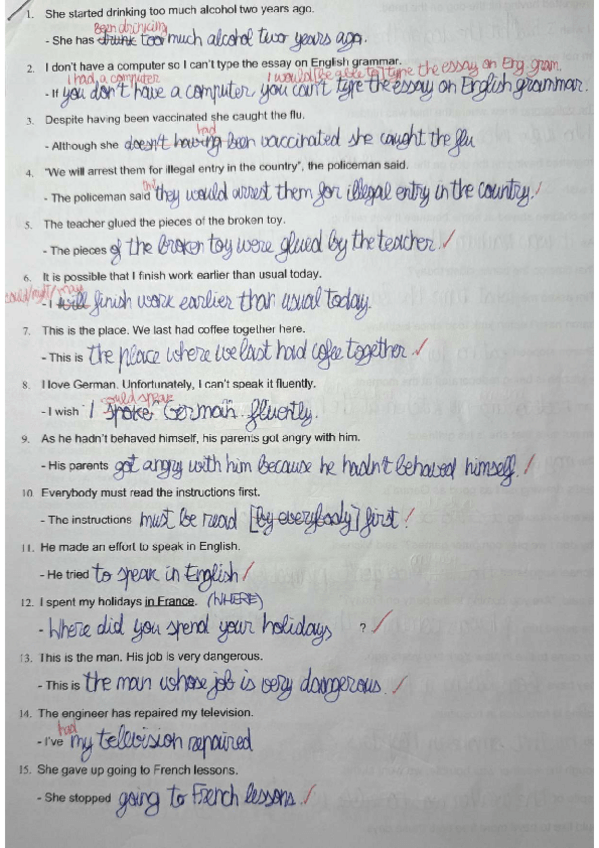 1. She started drinking too much alcohol two years ago.
been drinking
- She has drunk too much alcohol two years ago.
2. I don't have a computer so I can't type the essay on English grammar.
I had a computer I would [be able to] type the essay on Eng. gram.
- If you don't have a computer you can't type the essay on English grammar.
3. Despite having been vaccinated she caught the flu.
had
- Although she doesn't having been vaccinated she caught the flu
4. "We will arrest them for illegal entry in the country", the policeman said.
that
- The policeman said they would arrest them for illegal entry in the country.
5. The teacher glued the pieces of the broken toy.
- The pieces of the broken toy were glued by the teacher.
6. It is possible that I finish work earlier than usual today.
could/might/may
- I will finish work earlier than usual today.
7. This is the place. We last had coffee together here.
- This is the place where we last had cofee together.
8. I love German. Unfortunately, I can't speak it fluently.
could speak
- I wish I spoke German fluently.
9. As he hadn't behaved himself, his parents got angry with him.
- His parents got angry with him because he hadn't behaved himself.
10 Everybody must read the instructions first.
- The instructions must be read [by everybody] first
11. He made an effort to speak in English.
- He tried to speak in English
12. I spent my holidays in France. (WHERE)
- Where did you spend your holidays ?
13. This is the man. His job is very dangerous.
- This is the man whose job is very dangerous.
14. The engineer has repaired my television.
had
- I've my television repaired
15. She gave up going to French lessons.
- She stopped going to French lessons.